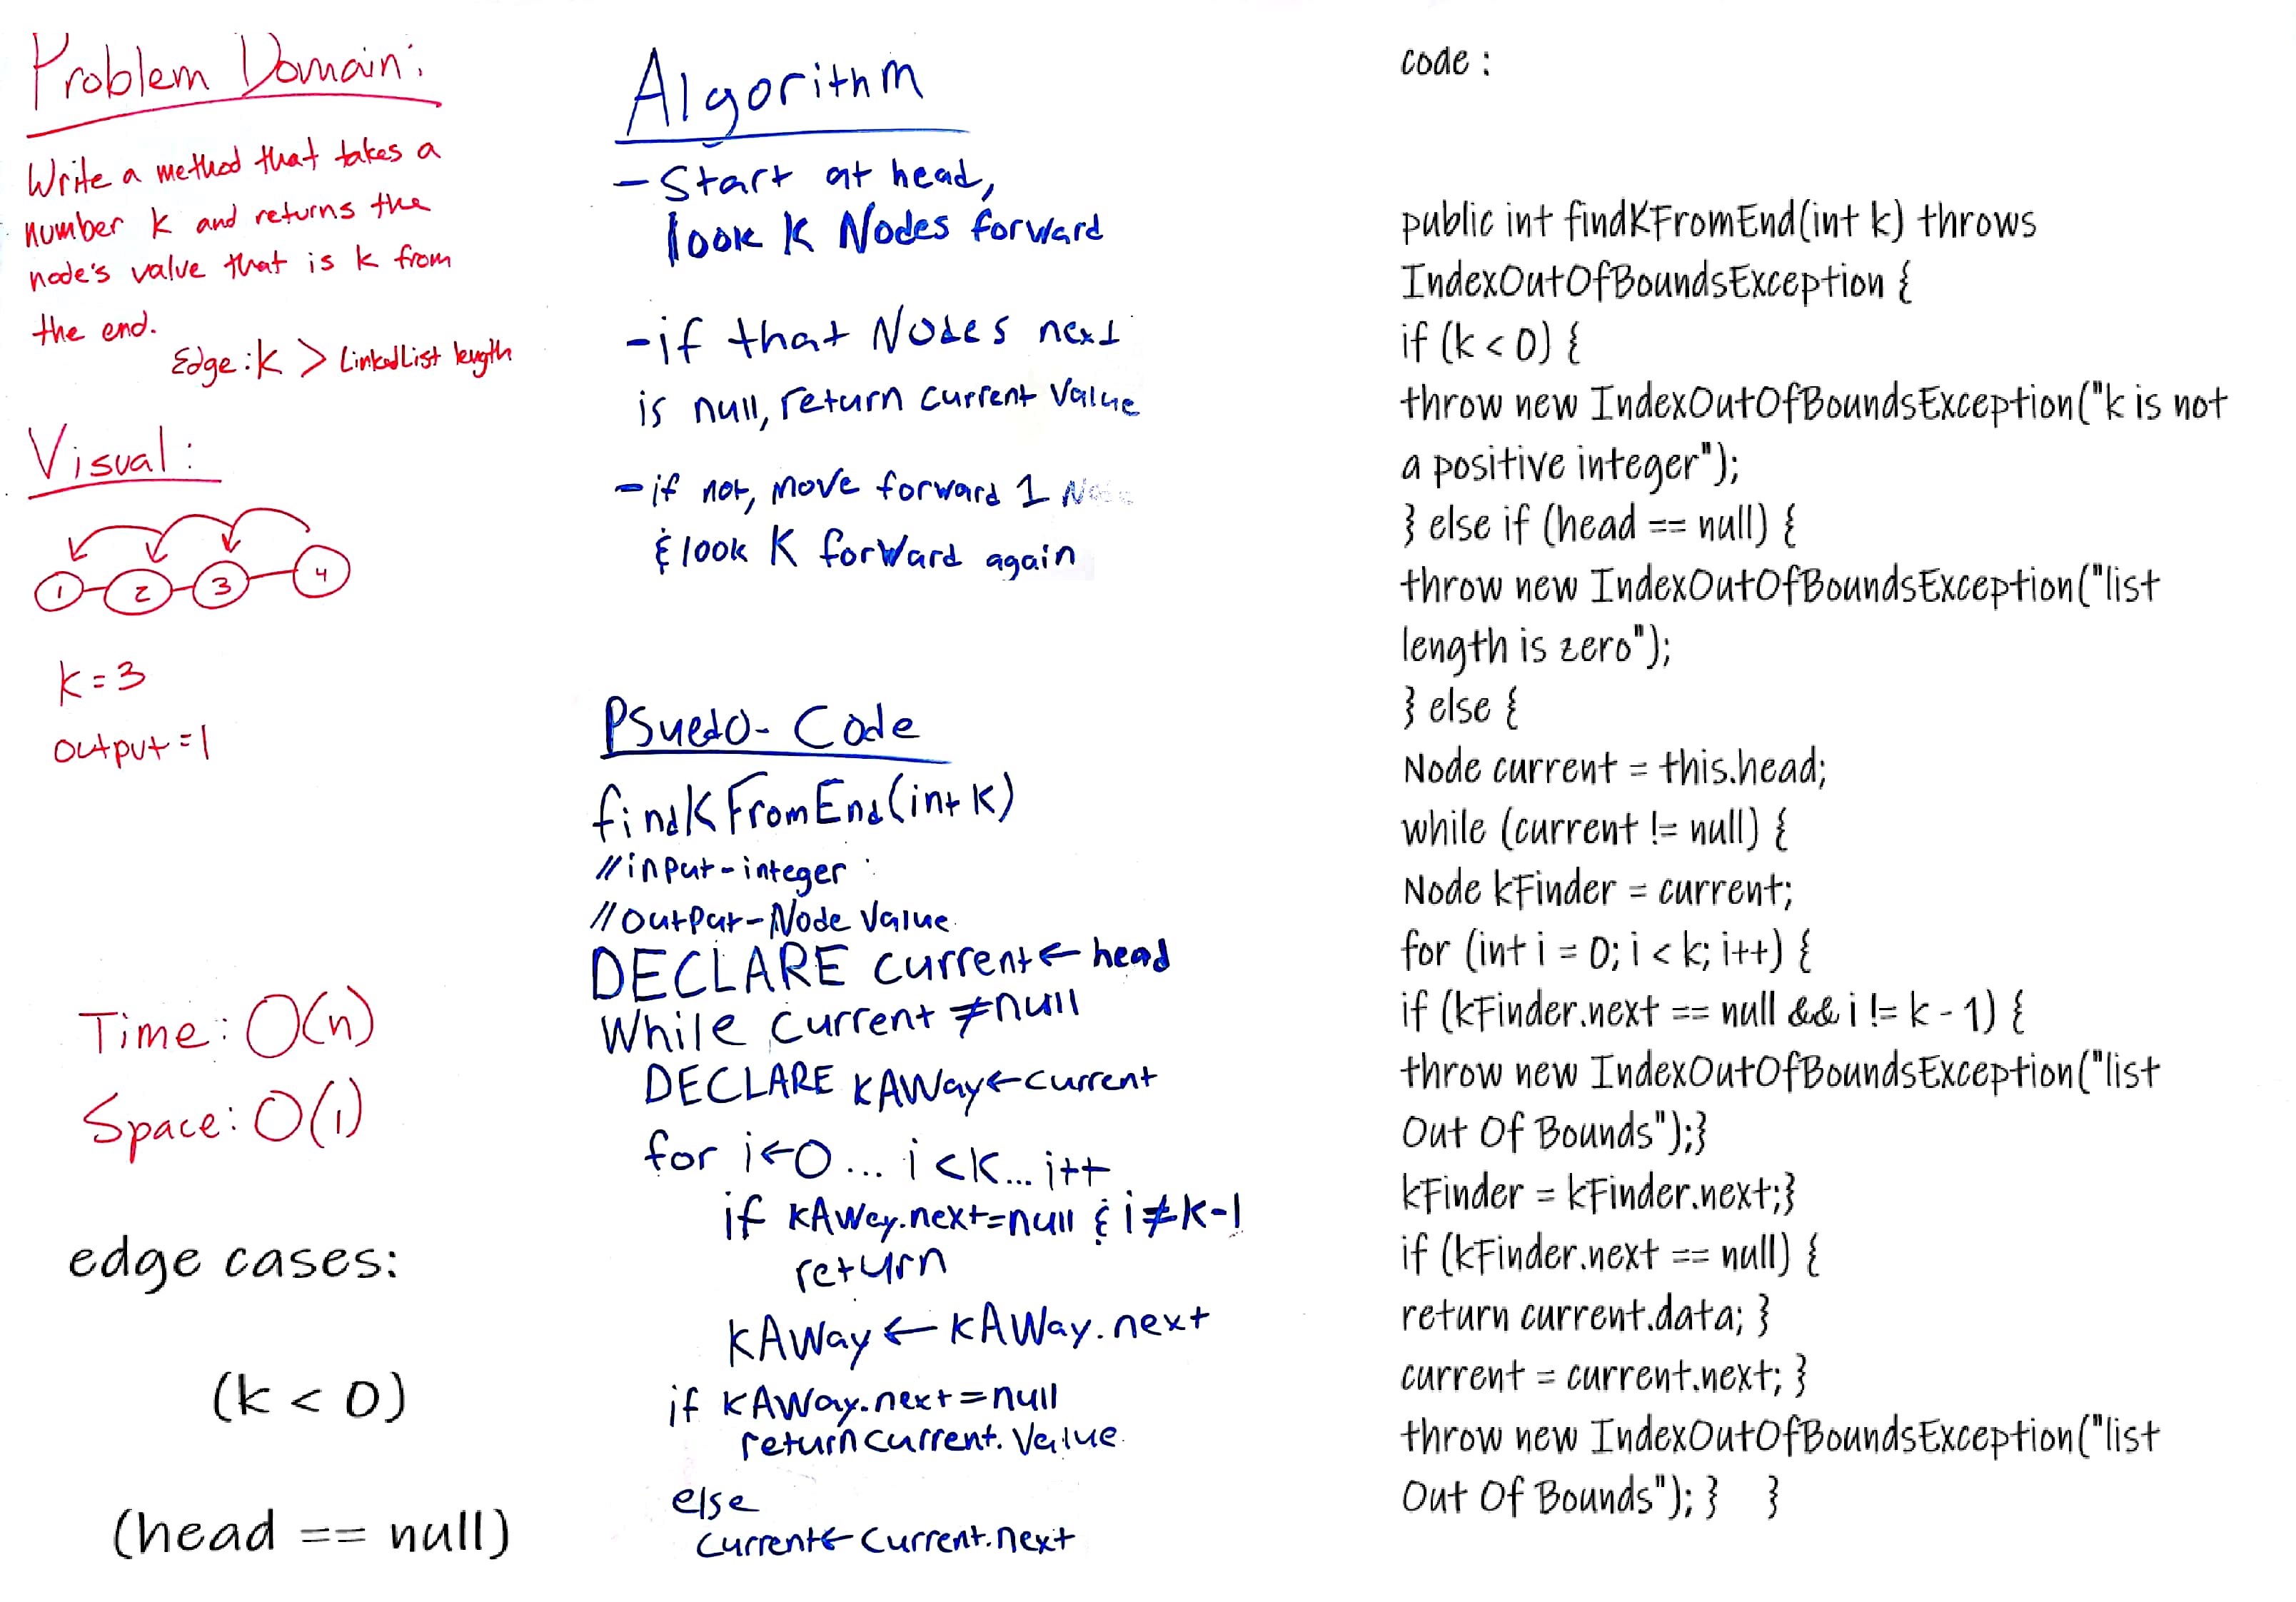 Problem Domain:
Write a method that takes a
number k and returns the
node's value that is k from
the end.
Edge: k > LinkedList length
Visual:
1 2 3 4
k = 3
output = 1
Time: O(n)
Space: O(1)
edge cases:
(k < 0)
(head == null)
Algorithm
- Start at head,
look K Nodes forward
- if that Nodes next
is null, return current Value
- if not, move forward 1 Node
& look K forward again
PSuedo-Code
findKFromEnd(int K)
//input-integer
//output-Node Value
DECLARE current ← head
While current ≠ null
DECLARE KAWay ← current
for i ← 0 ... i < K ... i++
if KAWay.next = null & i ≠ K-1
return
KAWay ← KAWay.next
if KAWay.next = null
return current.Value
else
current ← current.next
code :
public int findKFromEnd(int k) throws
IndexOutOfBoundsException {
if (k < 0) {
throw new IndexOutOfBoundsException("k is not
a positive integer");
} else if (head == null) {
throw new IndexOutOfBoundsException("list
length is zero");
} else {
Node current = this.head;
while (current != null) {
Node kFinder = current;
for (int i = 0; i < k; i++) {
if (kFinder.next == null && i != k - 1) {
throw new IndexOutOfBoundsException("list
Out Of Bounds");}
kFinder = kFinder.next;}
if (kFinder.next == null) {
return current.data; }
current = current.next; }
throw new IndexOutOfBoundsException("list
Out Of Bounds"); } }